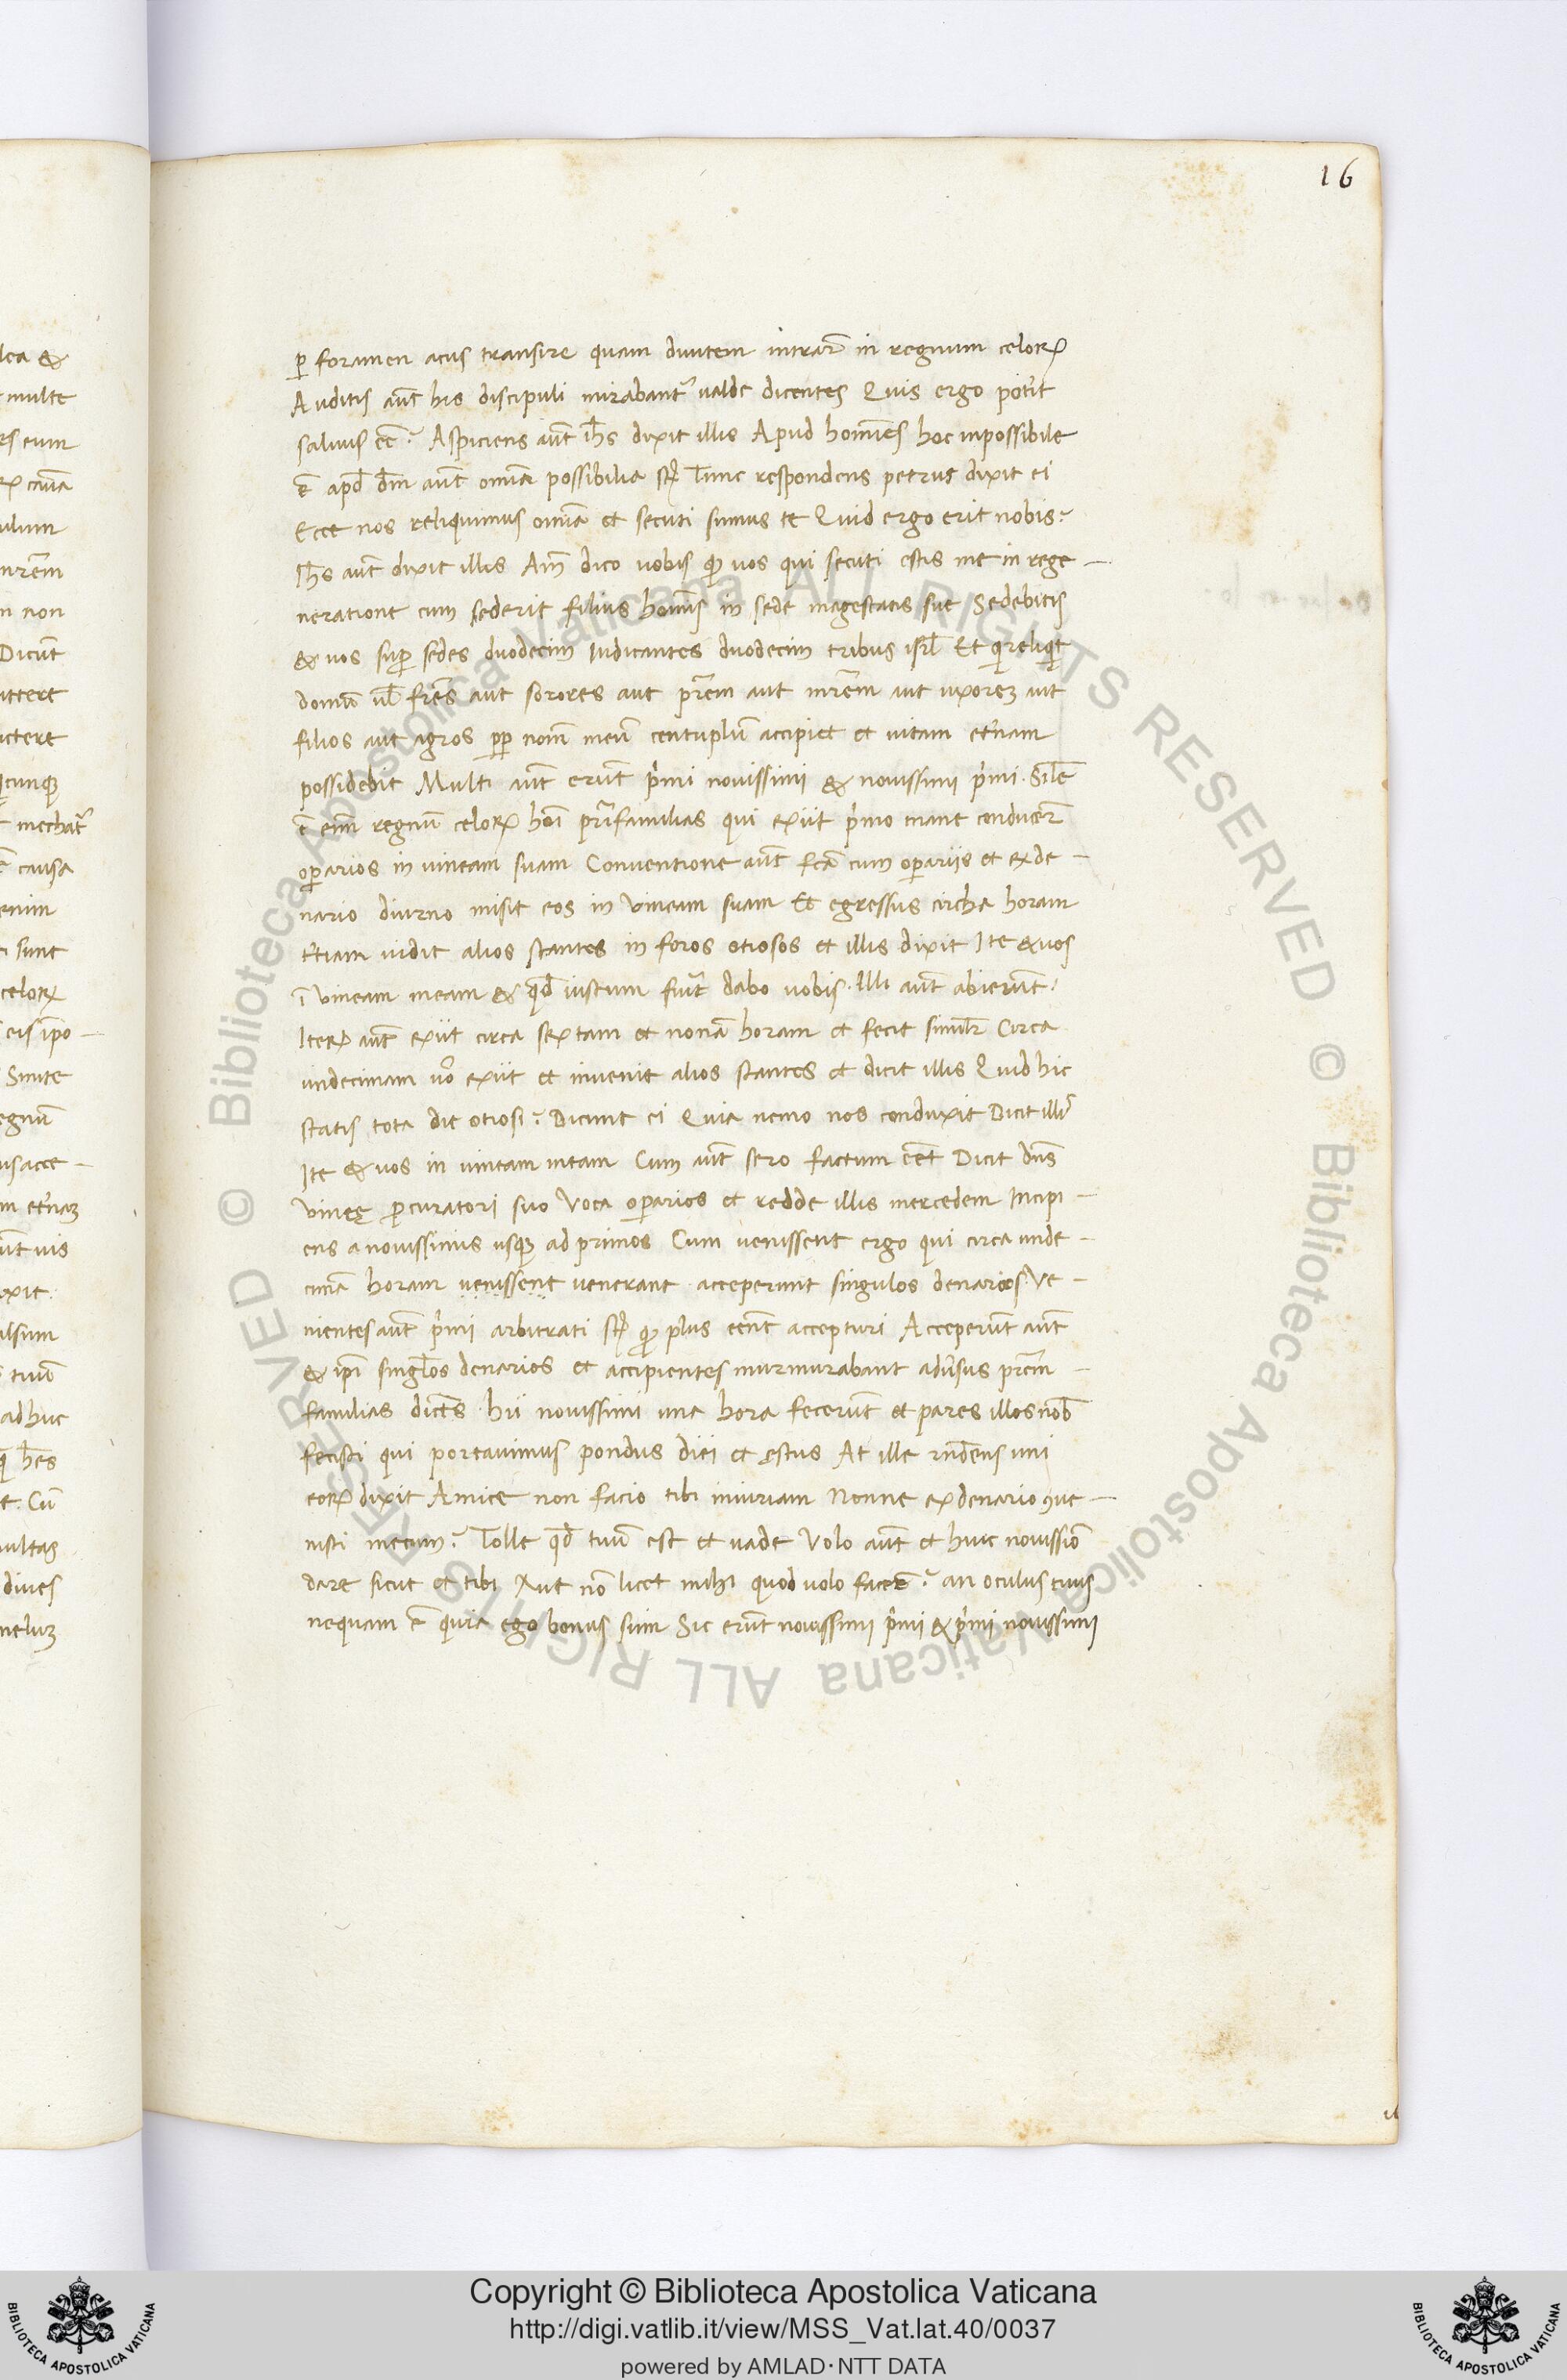 16
lea &
multe
rs eum
ꝝ cauā
ulum
mrēm
n non
Dicūt
ittere
ictere
icunqꝫ
mechat᷑
ē causa
enim
sunt
celoꝝ
eis īpo-
Sinite
egnū
us acce-
m et̓naꝫ
ūt uis
ixit:
ulsum
tuū
adhuc
hēs
te. Cū
multas
diues
meluꝫ
ꝑ foramen acus transire quam diuitem intrar̄ in regnum celoꝝ
Auditis aūt his discipuli mirabant᷑ ualde dicentes Quis ergo pot̓it
saluus eē? Aspiciens aūt ih̄s dixit illis Apud homīes hoc inpossibile
ē apd̄ dm̄ aūt omīa possibilia st̄ Tunc respondens petrus dixit ei
Ecce nos reliquimus omīa et secuti sumus te Quid ergo erit nobis?
Ih̄s aūt dixit illis Am̄ dico uobis ꝙ uos qui secuti estis me in rege-
neratione cum sederit filius homīs in sede magestatis sue Sedebitis
& uos suꝑ sedes duodecim Iudicantes duodecim tribus isrl̄ Et qi reliqit
domū ul̄ frēs aut sorores aut prēm aut mrēm aut uxoreꝫ aut
filios aut agros ꝓp nom̄ meū centuplū accipiet et uitam et̓nam
possidebit Multi aūt erūt p̓mi nouissimi & nouissimi p̓mi. Sil̄e
ē eim̄ regnū celoꝝ hoī pr̄ifamilias qui exiit p̓mo mane conducer̄
oꝑarios in uineam suam Conuentione aūt fcā cum oꝑariis et ex de-
nario diurno misit eos in uineam suam Et egressus circha horam
t̓tiam uidit alios stantes in foros otiosos et illis dixit Ite & uos
ī uineam meam & qd̄ iustum fuit̓ dabo uobis. Illi aūt abierūt.
Iteꝝ aūt exiit circa sextam et nonā horam et fecit simil̄r Circa
undecimam uo̓ exiit et inuenit alios stantes et dicit illis Quid hic
statis tota die otiosi? Dicunt ei Quia nemo nos conduxit Dicit illis
Ite & uos in uineam meam Cum aūt sero factum eēt Dicit dn̄s
uineę ꝓcuratori suo Voca oꝑarios et redde illis mercedem Incipi-
ens a nouissimis usqꝫ ad primos Cum uenissent ergo qui circa unde-
cimā horam uenissent uenerant acceperunt singulos denarios. Ve-
nientes aūt p̓mi arbitrati st̄ ꝙ plus eēnt accepturi Acceperūt aūt
& ip̄i singl̄os denarios et accipientes murmurabant adu̓sus prēm-
familias dicēs hii nouissimi una hora fecerūt et pares illos nob̄
fecisti qui portauimus pondus diei et ęstus At ille rn̄dens uni
eoꝝ dixit Amice non facio tibi iniuriam Nonne ex denario ꝯue-
nisti mecum? Tolle qd̄ tuū est et uade Volo aūt et huic nouissīo
dare sicut et tibi Aut nō licet mihi quod uolo facer̄? an oculus tuus
nequam ē quia ego bonus sum Sic erūt nouissimi p̓mi & p̓mi nouissimi
Copyright © Biblioteca Apostolica Vaticana
http://digi.vatlib.it/view/MSS_Vat.lat.40/0037
powered by AMLAD·NTT DATA
BIBLIOTECA APOSTOLICA VATICANA
BIBLIOTECA APOSTOLICA VATICANA
© Biblioteca Apostolica Vaticana ALL RIGHTS RESERVED
© Biblioteca Apostolica Vaticana ALL RIGHTS RESERVED